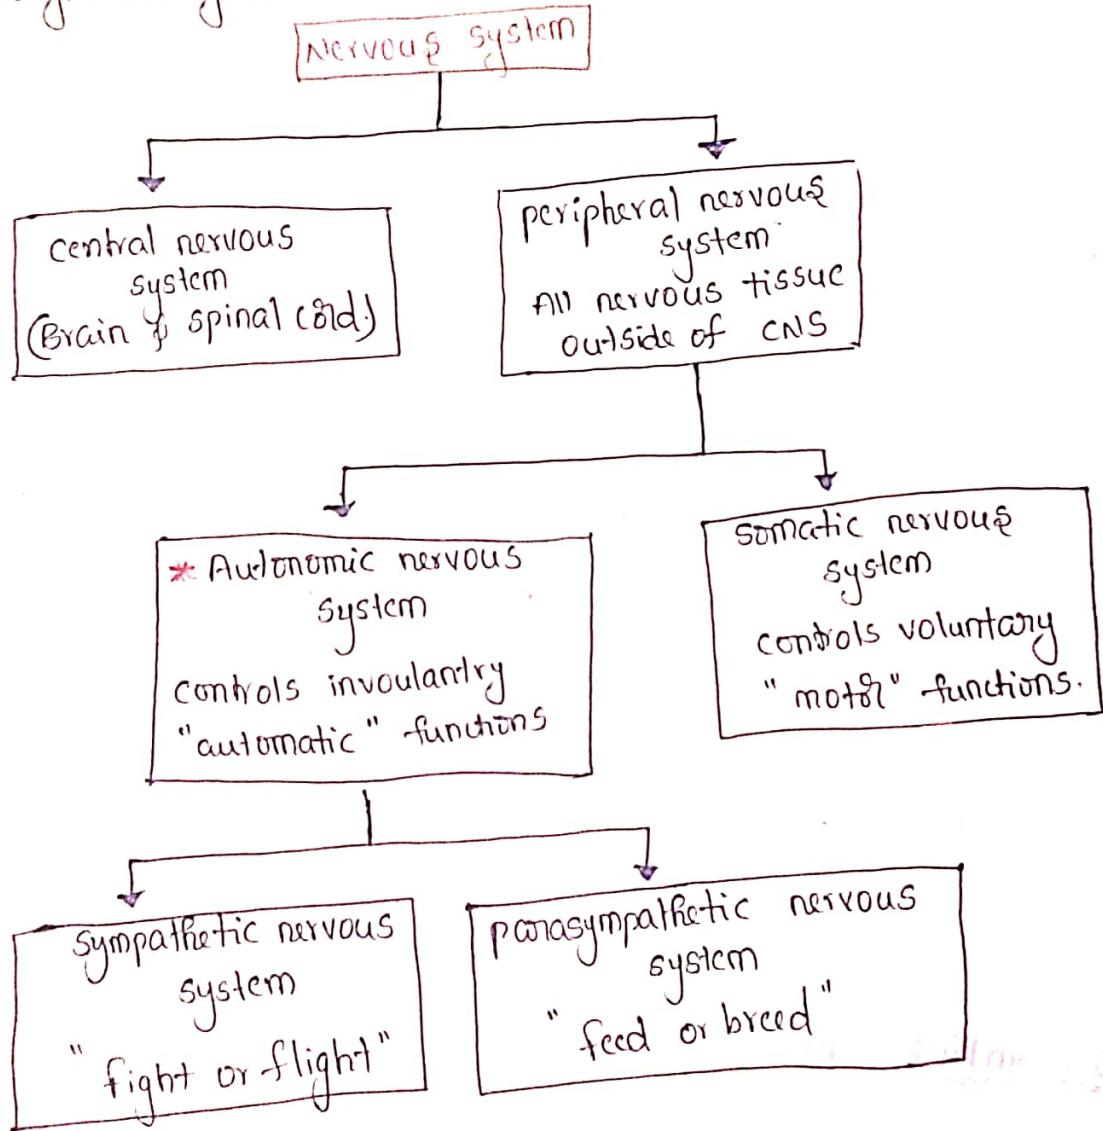 Nervous system
central nervous
system
(Brain & spinal cord)
peripheral nervous
system
All nervous tissue
outside of CNS
* Autonomic nervous
system
controls invoulantry
"automatic" functions
somatic nervous
system
controls voluntary
"motor" functions.
sympathetic nervous
system
"fight or flight"
parasympathetic nervous
system
"feed or breed"